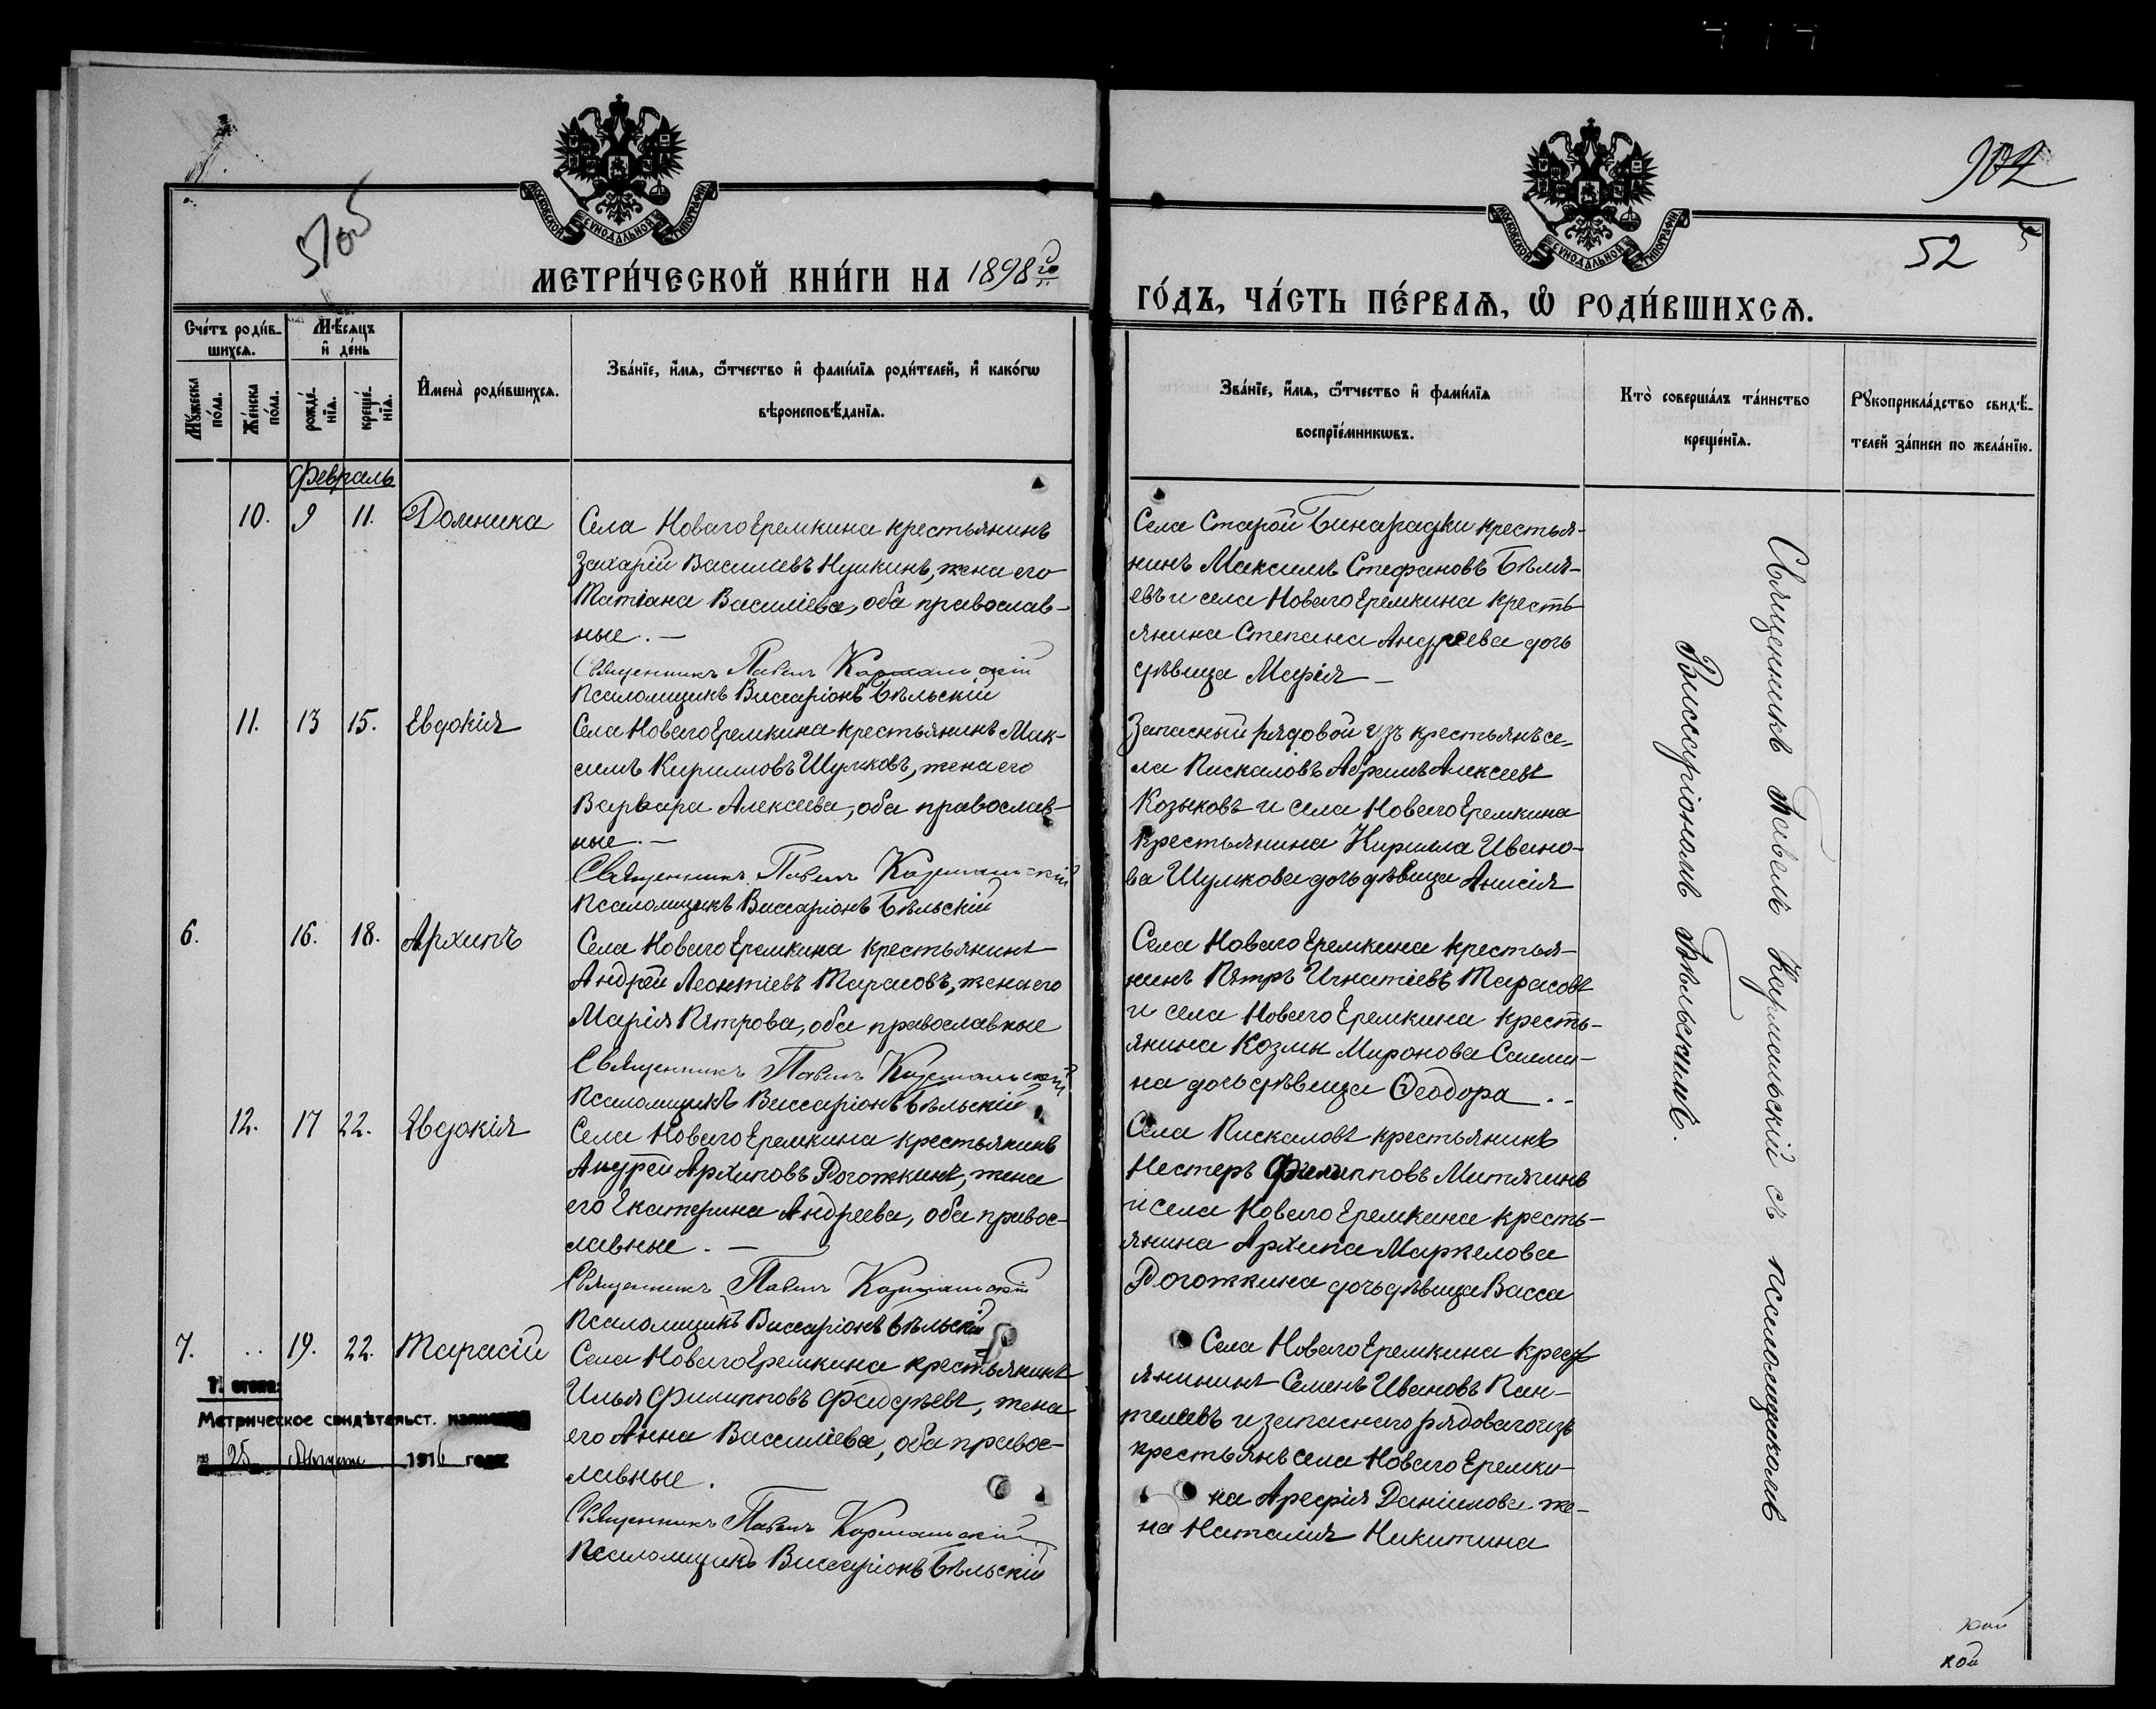 902
52
5
МОСКОВСКОЙ СѴНОДАЛЬНОЙ ТИПОГРАФІИ
МОСКОВСКОЙ СѴНОДАЛЬНОЙ ТИПОГРАФІИ
МЕТРИ́ЧЕСКОЙ КНИ́ГИ НА 1898 го
ГО́ДЪ, ЧА́СТЬ ПЕ́РВАѦ, Ѿ РОДИ́ВШИХСѦ.
Сче́тъ роди́в-
шихсѧ.
Мѣ́сяцъ
и҆ де́нь
Мꙋ́жеска
по́ла.
Же́нска
по́ла.
рожде́-
нїѧ.
креще́-
нїѧ.
И҆мена̀ роди́вшихсѧ.
Зва́нїе, и҆́мѧ, ѻ҆́тчество и҆ фами́лїѧ роди́телей, и҆ како́гѡ
вѣроисповѣ́данїѧ.
Зва́нїе, и҆́мѧ, ѻ҆́тчество и҆ фами́лїѧ
воспрїе́мникѡвъ.
Кто̀ соверша́лъ та́инство
креще́нїѧ.
Рꙋкоприкла́дство свидѣ́-
телей за́писи по жела́нїю.
Февраль
10. 9 11. Домника
Села Новаго Еремкина крестьянинъ
Захарій Василиевъ Нушкинъ, жена его
Татіана Василіева, оба православ-
ные. —
Священникъ Павелъ Кармальскій
Псаломщикъ Виссаріонъ Бѣльскій
Села Старой Бинарадки крестья-
нинъ Максимъ Стефановъ Бѣля-
евъ и села Новаго Еремкина кресть-
янина Степана Андреева дочь
дѣвица Марія —
11. 13 15. Евдокія
Села Новаго Еремкина крестьянинъ Мак-
симъ Кирилловъ Шулковъ, жена его
Варвара Алексеева, оба православ-
ные. —
Священникъ Павелъ Кармальскій
Псаломщикъ Виссаріонъ Бѣльскій
Запасный рядовой изъ крестьянъ се-
ла Пискаловъ Абрамъ Алексеевъ
Козыковъ и села Новаго Еремкина
крестьянина Кирилла Ивано-
ва Шулкова дочь дѣвица Анисія
6. 16. 18. Архипъ
Села Новаго Еремкина крестьянинъ
Андрей Леонтіевъ Тарасовъ, жена его
Марія Петрова, оба православные
Священникъ Павелъ Кармальскій
Псаломщикъ Виссаріонъ Бѣльскій
Села Новаго Еремкина крестья-
нинъ Петръ Игнатіевъ Тарасовъ
и села Новаго Еремкина кресть-
янина Козмы Миронова
на дочь дѣвица Ѳеодора. -
12. 17 22. Евдокія
Села Новаго Еремкина крестьянинъ
Андрей Архиповъ Рогожкинъ, жена
его Екатерина Андреева, оба правос-
лавные. —
Священникъ Павелъ Кармальскій
Псаломщикъ Виссаріонъ Бѣльскій
Села Пискаловъ крестьянинъ
Нестеръ Филипповъ Митягинъ
и села Новаго Еремкина кресть-
янина Архипа Маркелова
Рогожкина дочь дѣвица Васса
7. .. 19. 22. Тарасій
Села Новаго Еремкина крестьянинъ
Илья Филипповъ Фадѣевъ, жена
его Анна Василіева, оба правос-
лавные.
Священникъ Павелъ Кармальскій
Псаломщикъ Виссаріонъ Бѣльскій
Села Новаго Еремкина крест
янинъ Семенъ Ивановъ Пан-
телеевъ и запаснаго рядоваго изъ
крестьянъ села Новаго Еремки-
на Арефія Даніилова же-
на Наталія Никитина
Метрическое свидѣтельст.
25 1916 года
Священникъ Павелъ Кармальскій съ псаломщикомъ
Виссаріономъ Бѣльскимъ.
кой
кой